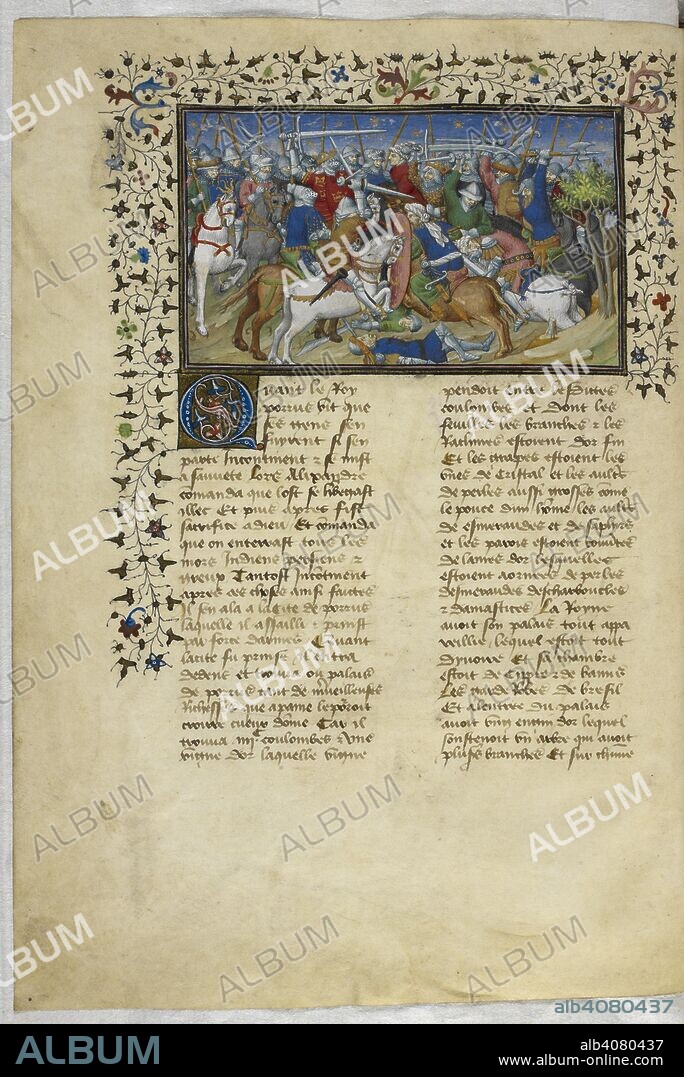 Quant le Roy
porrus vit que
ses gens sen
fuyrent si sen
parti Incontinent & se mist
a sauvete Lors Alixandre
comanda que lost se hebgast
illec Et puis apres fist
sacrifice a dieu Et comanda
que on enterrast tous les
mors Indiens persiens &
greux Tantost Incotinent
apres ces choses ainsi faictes
Il sen ala a la Cite de porrus
laquelle il assailli & prinst
par force darmes Et quant
la cite fu prinse il entra
dedens et trouva ou palais
de porrus tant de mveilleuses
Richesses que a paine le poroit
croire cueur dome Car il
trouva coulombes & une
vigne dor laquelle vigne
pendoit entre lesdictes
coulombes et Dont les
feuilles les branches & les
Racines estoient dor fin
Et les grapes estoient les
unes de Cristal et les aults
de perles aussi grosses come
le pouce dun home les aults
de esmeraudes et de saphirs
et les parois estoient couvtes
de lames dor lesquelles
estoient aornees de perles
desmeraudes descharboucles
& damastices La Royne
avoit son palais tout appa
reillie lequel estoit tout
dyvoire Et sa chambre
estoit de Cippre & de baunis
Les garde Robes de bresil
Et alentre du palais
avoit un ... dor lequel
soustenoit un arbre qui avoit
plusrs branches Et sur chune
ALBUM
alb4080437
ALBUM
alb4080437
www.album-online.com